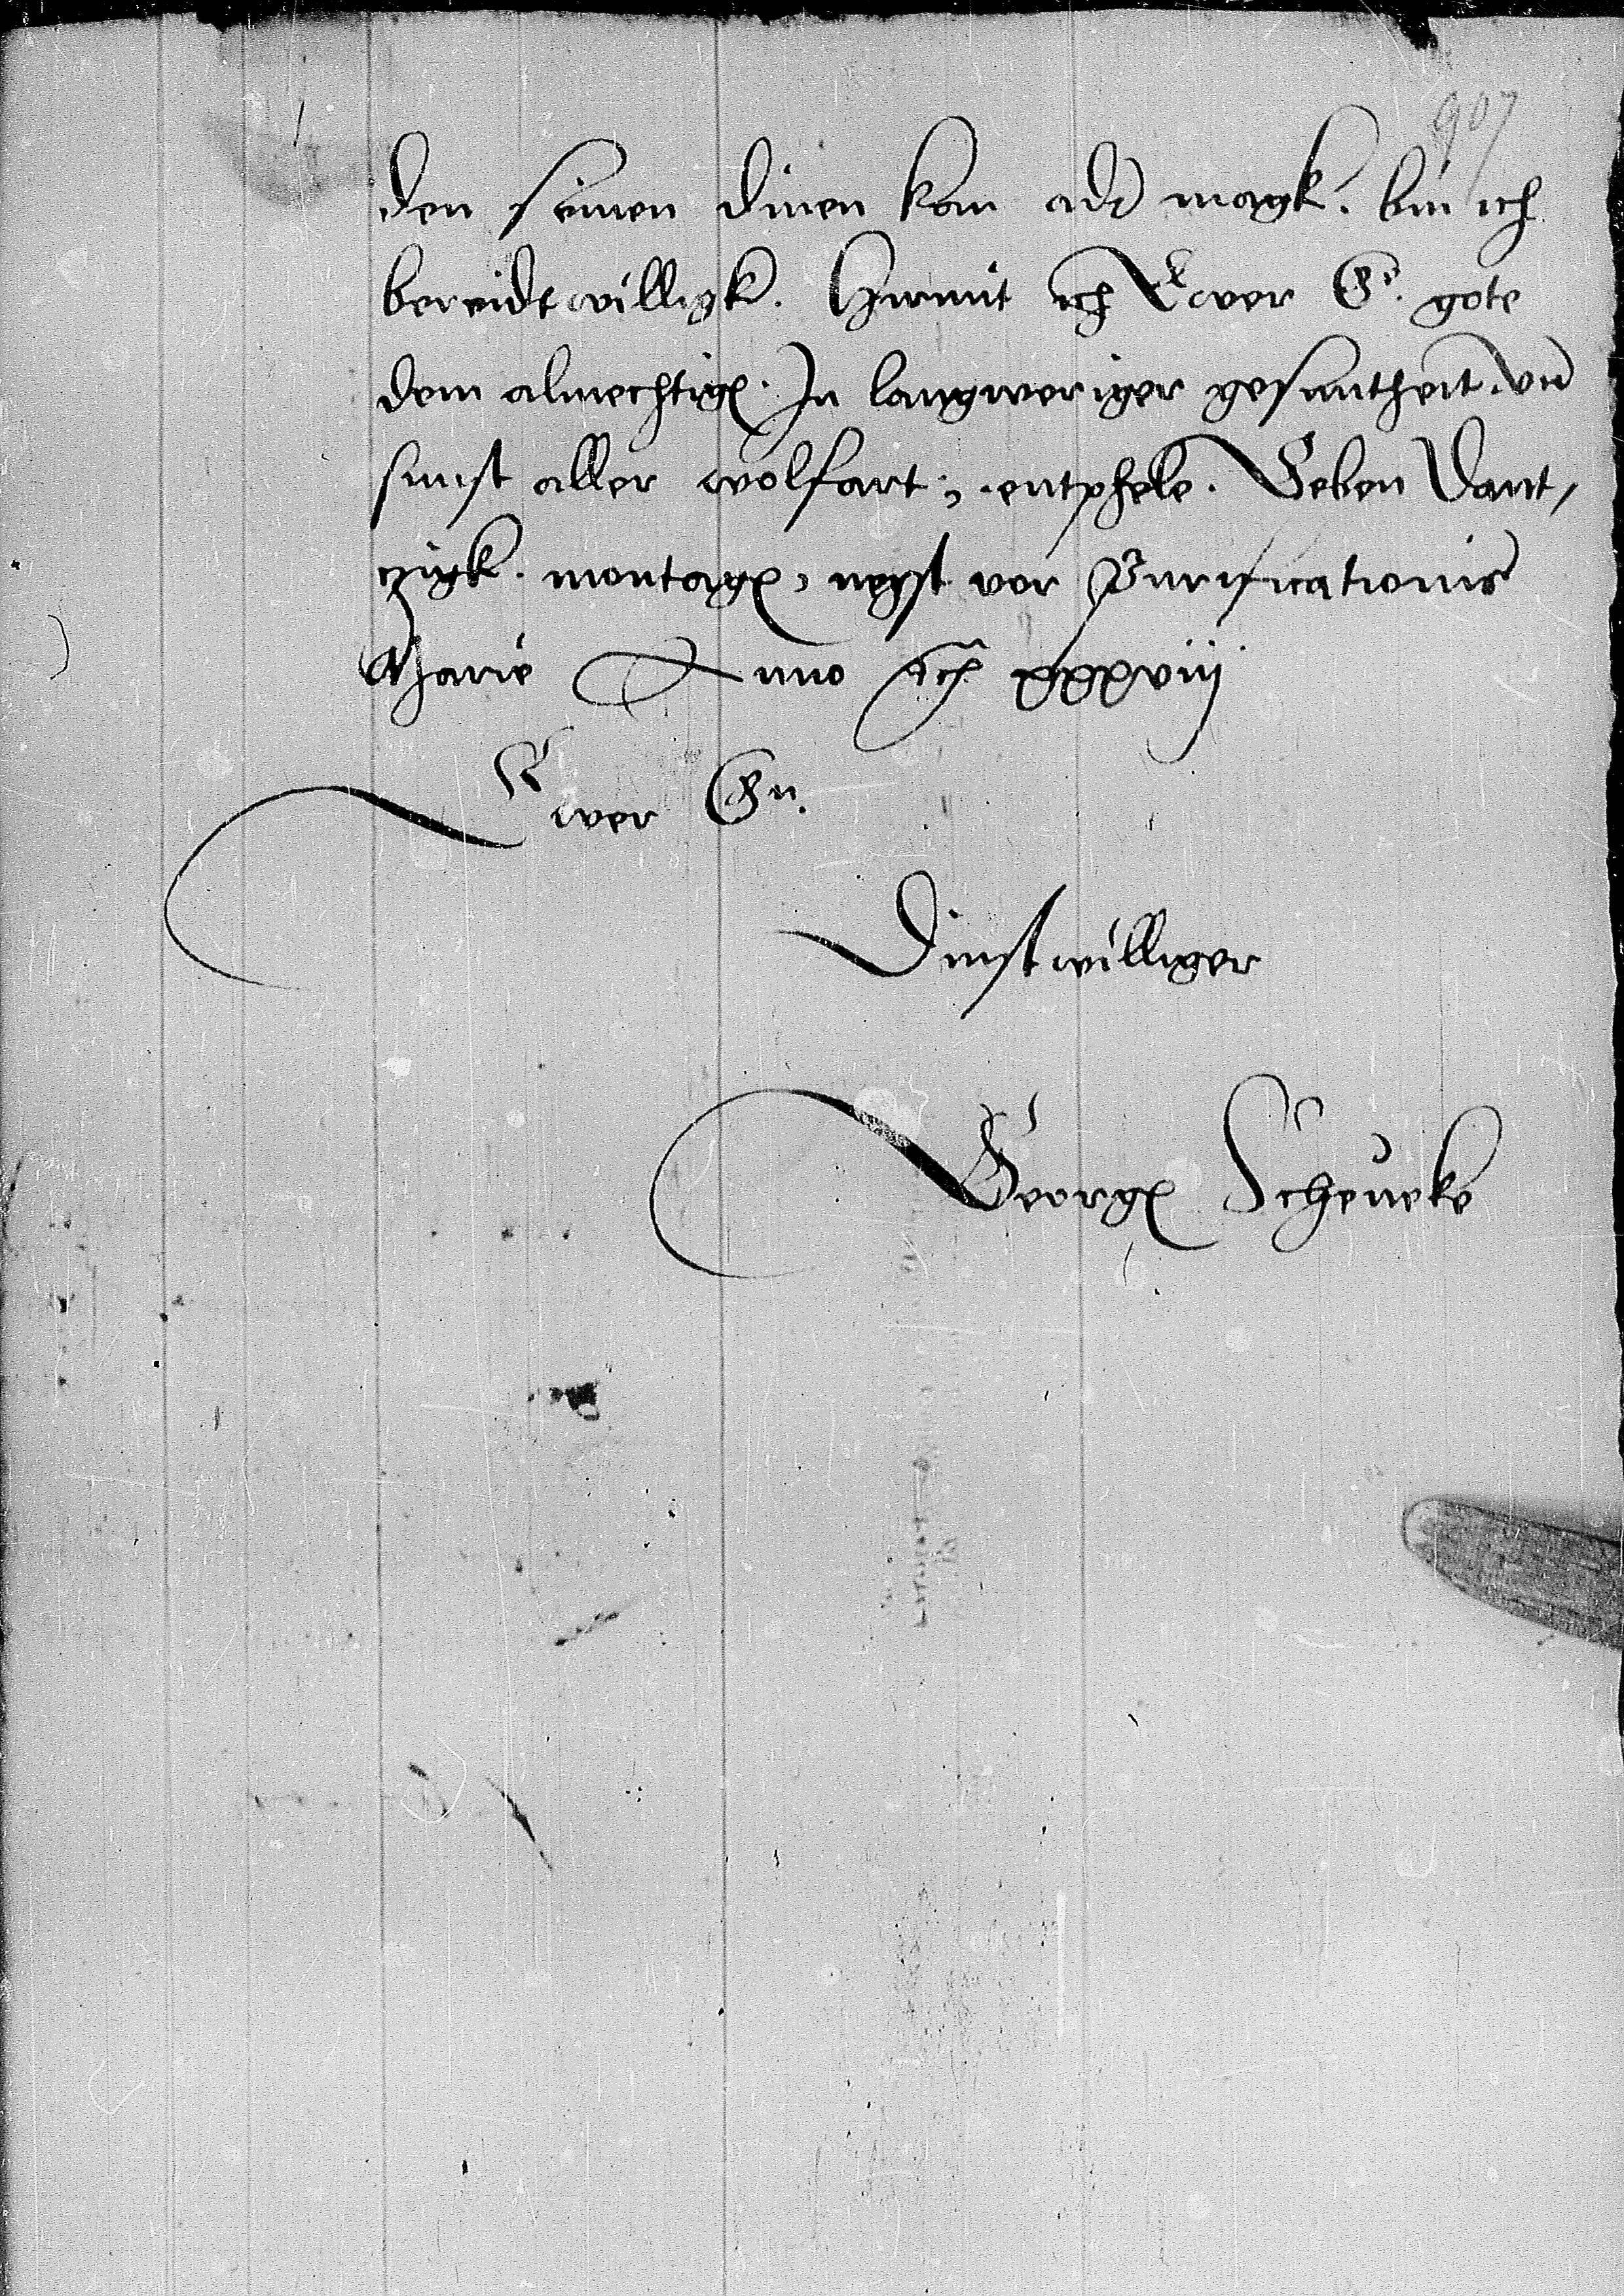 907
den seinen dinen kan ader magk. bin ich
bereidtwilligk. Hirmit ich Ewer G. gote
dem almechtigen. In langweriger gesuntheit. vnd
sunst aller wolfart; entphele. Geben Dant,
zigk. montages, negst vor Purificationis
Marie Anno xxxviij
Ewer Gn.
Dinstwilliger
Georg Scheueke